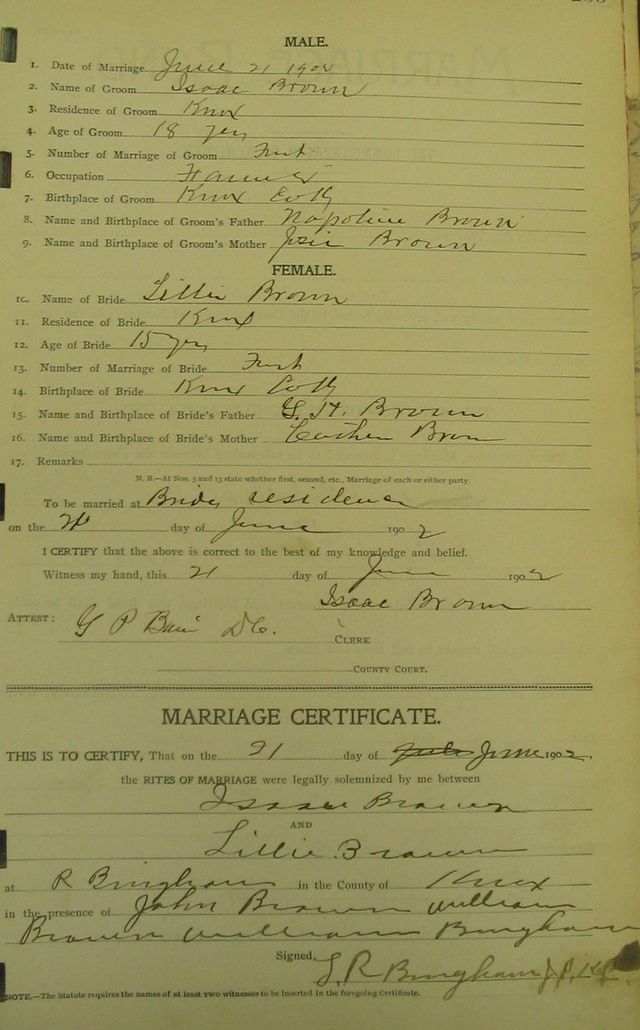 MALE.
1. Date of Marriage June 21 1902
2. Name of Groom Isaac Brown
3. Residence of Groom Knox
4. Age of Groom 18 yrs
5. Number of Marriage of Groom First
6. Occupation Farmer
7. Birthplace of Groom Knox Co Ky
8. Name and Birthplace of Groom's Father Napoline Brown
9. Name and Birthplace of Groom's Mother Josie Brown
FEMALE.
10. Name of Bride Lillie Brown
11. Residence of Bride Knox
12. Age of Bride 15 yrs
13. Number of Marriage of Bride First
14. Birthplace of Bride Knox Co Ky
15. Name and Birthplace of Bride's Father G. H. Brown
16. Name and Birthplace of Bride's Mother Brown
17. Remarks
N. B.—At Nos. 5 and 13 state whether first, second, etc., Marriage of each or either party.
To be married at Brides residence
on the 21 day of June 1902
I CERTIFY that the above is correct to the best of my knowledge and belief.
Witness my hand, this 21 day of June 1902
Isaac Brown
ATTEST: G P Bain D C.
CLERK
COUNTY COURT.
MARRIAGE CERTIFICATE.
THIS IS TO CERTIFY, That on the 21 day of June 1902.
the RITES OF MARRIAGE were legally solemnized by me between
Isaac Brown
AND
Lillie Brown
at R Bingham in the County of Knox
in the presence of John Brown William
Brown William Bingham
Signed, R Bingham J P K C
NOTE.—The Statute requires the names of at least TWO witnesses to be inserted in the foregoing Certificate.